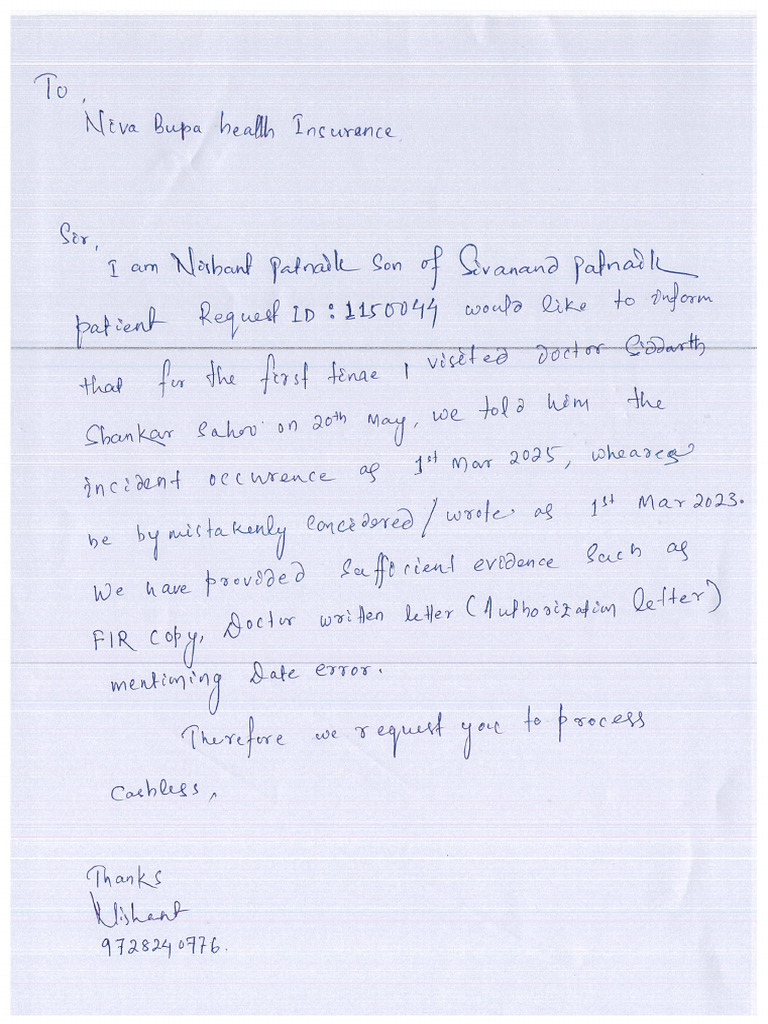 To,
Niva Bupa health Insurance
Sir,
I am Nishant Patnaik Son of Sivanand patnaik
patient Request ID : 1150044 would like to inform
that for the first time I visited doctor Siddarth
Shankar Sahoo on 20th May, we told him the
incident occurence as 1st Mar 2025, wheareas
he by mistakenly Concidered / wrote as 1st Mar 2023.
We have provided Sufficient evidence Such as
FIR Copy, Doctor written letter (Authorization letter)
mentioning Date error.
Therefore we request you to process
Cashless,
Thanks
Nishant
9728240776.